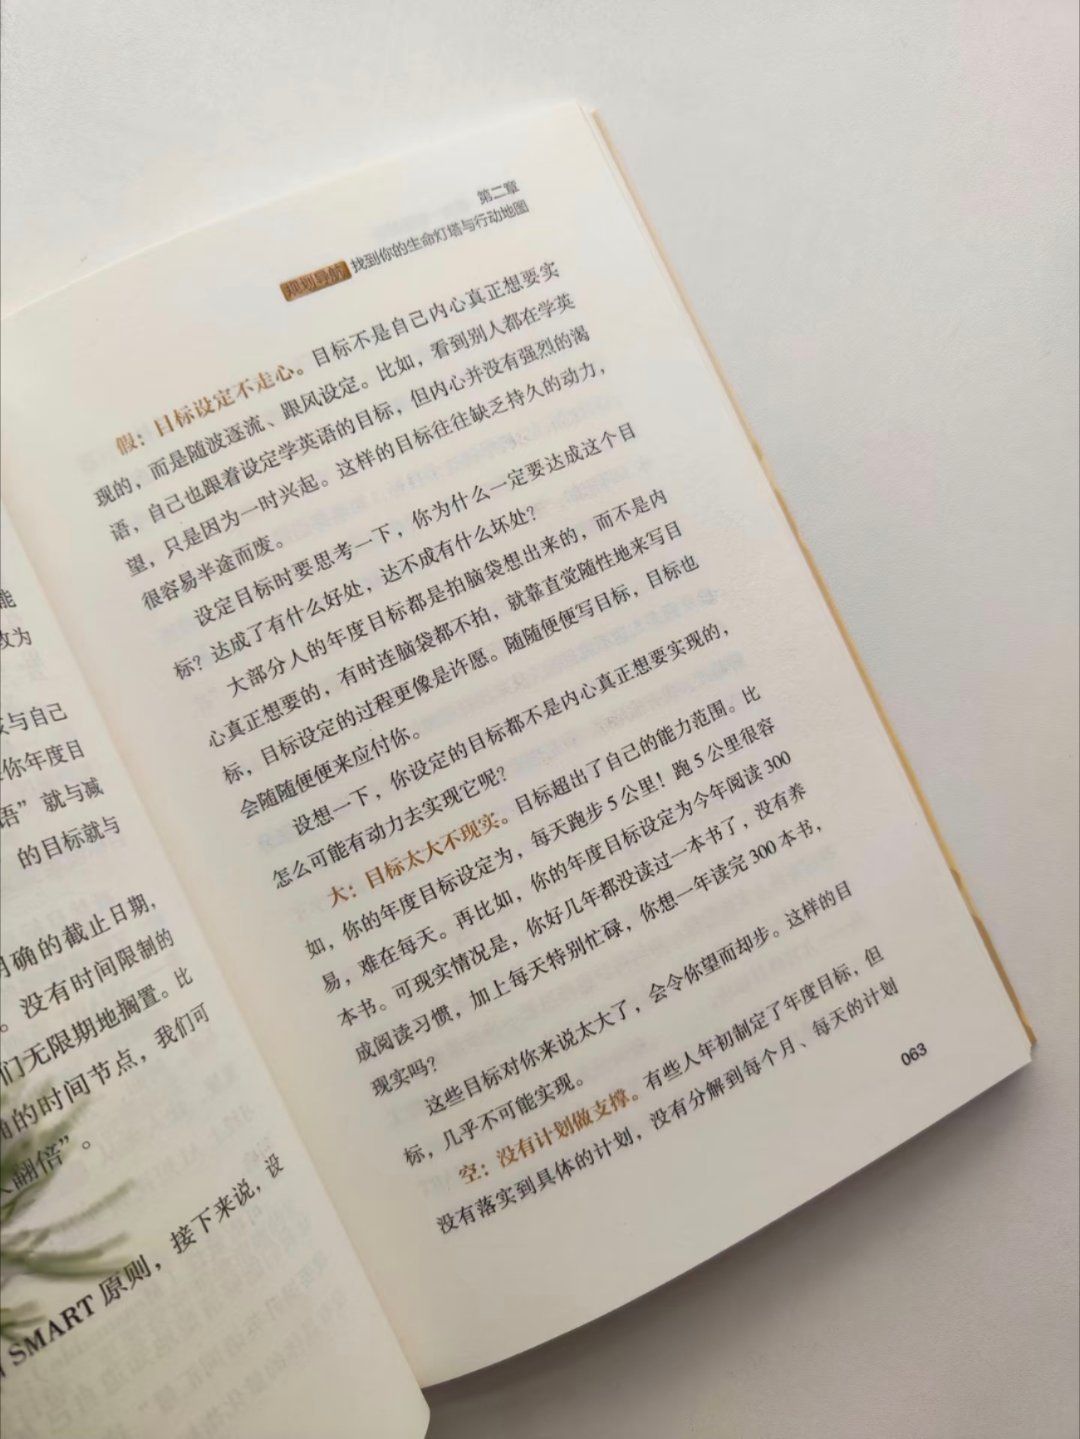 能
改为
与自己
你年度目
语”就与减
的目标就与
明确的截止日期，
。没有时间限制的
们无限期地搁置。比
的时间节点，我们可
翻倍”。
SMART 原则，接下来说，设
第二章
规划导航 找到你的生命灯塔与行动地图
假：目标设定不走心。目标不是自己内心真正想要实
现的，而是随波逐流、跟风设定。比如，看到别人都在学英
语，自己也跟着设定学英语的目标，但内心并没有强烈的渴
望，只是因为一时兴起。这样的目标往往缺乏持久的动力，
很容易半途而废。
设定目标时要思考一下，你为什么一定要达成这个目
标？达成了有什么好处，达不成有什么坏处？
大部分人的年度目标都是拍脑袋想出来的，而不是内
心真正想要的，有时连脑袋都不拍，就靠直觉随性地来写目
标，目标设定的过程更像是许愿。随随便便写目标，目标也
会随随便便来应付你。
设想一下，你设定的目标都不是内心真正想要实现的，
怎么可能有动力去实现它呢？
大：目标太大不现实。目标超出了自己的能力范围。比
如，你的年度目标设定为，每天跑步 5 公里！跑 5 公里很容
易，难在每天。再比如，你的年度目标设定为今年阅读 300
本书。可现实情况是，你好几年都没读过一本书了，没有养
成阅读习惯，加上每天特别忙碌，你想一年读完 300 本书，
现实吗？
这些目标对你来说太大了，会令你望而却步。这样的目
标，几乎不可能实现。
空：没有计划做支撑。有些人年初制定了年度目标，但
没有落实到具体的计划，没有分解到每个月、每天的计划
063